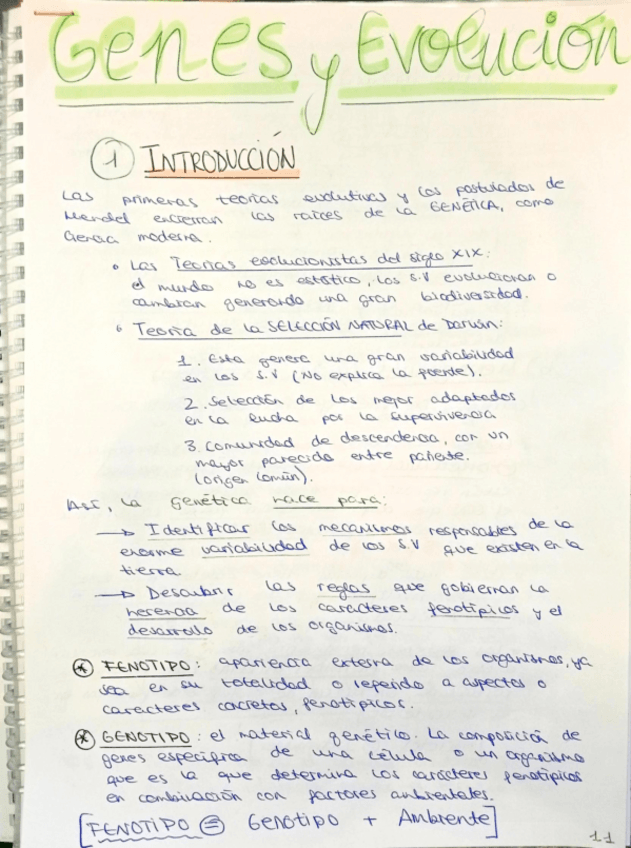 Genes y Evolución
1 INTRODUCCIÓN
Las primeras teorías evolutivas y los postulados de
Mendel encierran las raíces de la GENÉTICA, como
ciencia moderna.
• Las Teorías evolucionistas del siglo XIX:
el mundo no es estático, los S.V evolucionan o
cambian generando una gran biodiversidad.
• Teoría de la SELECCIÓN NATURAL de Darwin:
1. Esta genera una gran variabilidad
en los S.V (No explica la fuente).
2. Selección de los mejor adaptados
en la lucha por la supervivencia
3. Comunidad de descendencia, con un
mayor parecido entre pariente.
(origen común).
Así, la genética nace para:
→ Identificar los mecanismos responsables de la
enorme variabilidad de los S.V que existen en la
tierra
→ Descubrir las reglas que gobiernan la
herencia de los caracteres fenotípicos y el
desarrollo de los organismos.
* FENOTIPO: apariencia externa de los organismos, ya
sea en su totalidad o referido a aspectos o
caracteres concretos, fenotípicos.
* GENOTIPO: el material genético. La composición de
genes específica de una célula o un organismo
que es la que determina los carácteres fenotípicos
en combinación con factores ambientales.
[FENOTIPO = Genotipo + Ambiente]
11